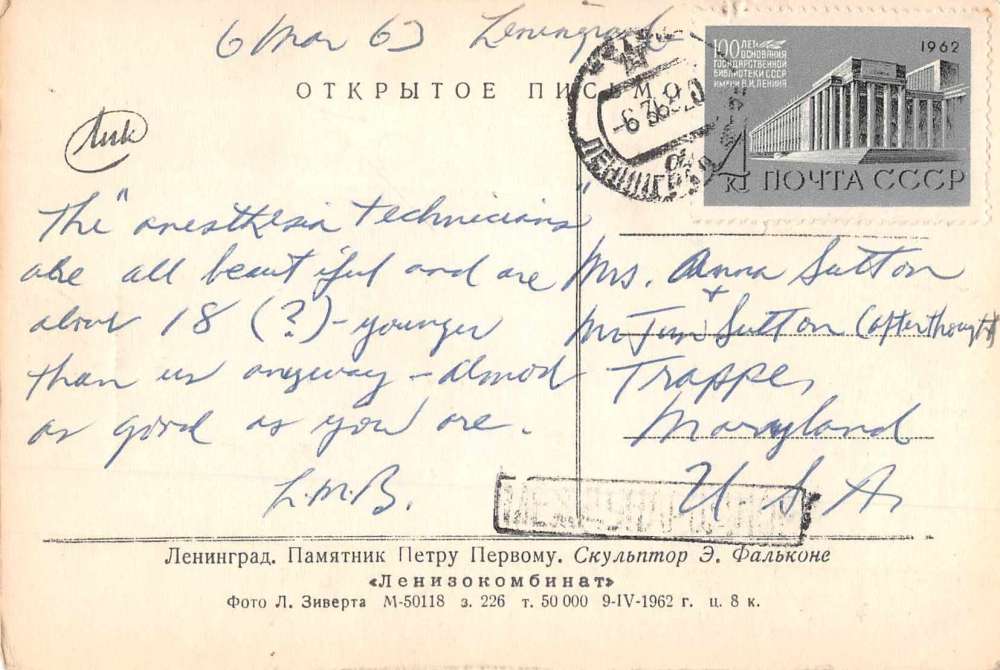 6 Mar 63 Leningrad
ОТКРЫТОЕ ПИСЬМО
100 ЛЕТ
ОСНОВАНИЯ
ГОСУДАРСТВЕННОЙ
БИБЛИОТЕКИ СССР
ИМЕНИ В.И. ЛЕНИНА
1962
ПОЧТА СССР
ЛЕНИНГРАД
The "anesthesia technicians"
are all beautiful and are
about 18 (?) - younger
than us anyway - almost
as good as you are.
L.M.B.
Mrs. Anna Sutton
+
Mr Jim Sutton (afterthought)
Trappe,
Maryland
U.S.A.
Ленинград. Памятник Петру Первому. Скульптор Э. Фальконе
«Ленизокомбинат»
Фото Л. Зиверта М-50118 з. 226 т. 50 000 9-IV-1962 г. ц. 8 к.